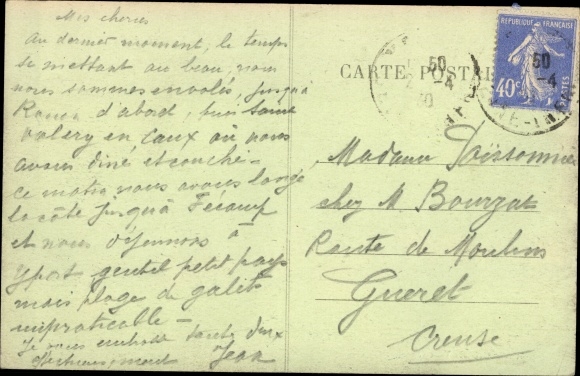 Mes chères
Au dernier moment, le temps
se mettant au beau, nous
nous sommes envolés, jusqu'à
Rouen d'abord, puis Saint
Valery en Caux où nous
avons diné et couché -
ce matin nous avons longé
la côte jusqu'à Fecamp
et nous déjeunons à
Yport gentil petit pays
mais plage de galets
impraticable -
Je vous embrasse toutes deux
Jean
CARTE POSTALE
REPUBLIQUE FRANÇAISE
40c
POSTES
50
-4
50
-4
Madame Poissonnier
chez M Bourzat
Route de Moulins
Gueret
Creuse